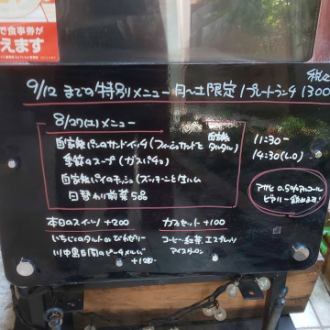 で食事券が
えます
9/12 までの特別メニュー 月〜土限定 1プレートランチ 1300
8/27(土)メニュー
自家製パンのサンドイッチ(フィッシュカツと自家製タルタル)
季節のスープ(ガスパチョ)
自家製パイのキッシュ(ズッキーニと生ハム
日替わり前菜5品
11:30-
14:30(L.O)
アサヒ 0.5%アルコール
ビアリー 飲めます!
本日のスイーツ +200
いちじくのタルト
川中島白桃のピーチメルバ
+100
カフェセット +100
コーヒー 紅茶 エスプレッソ